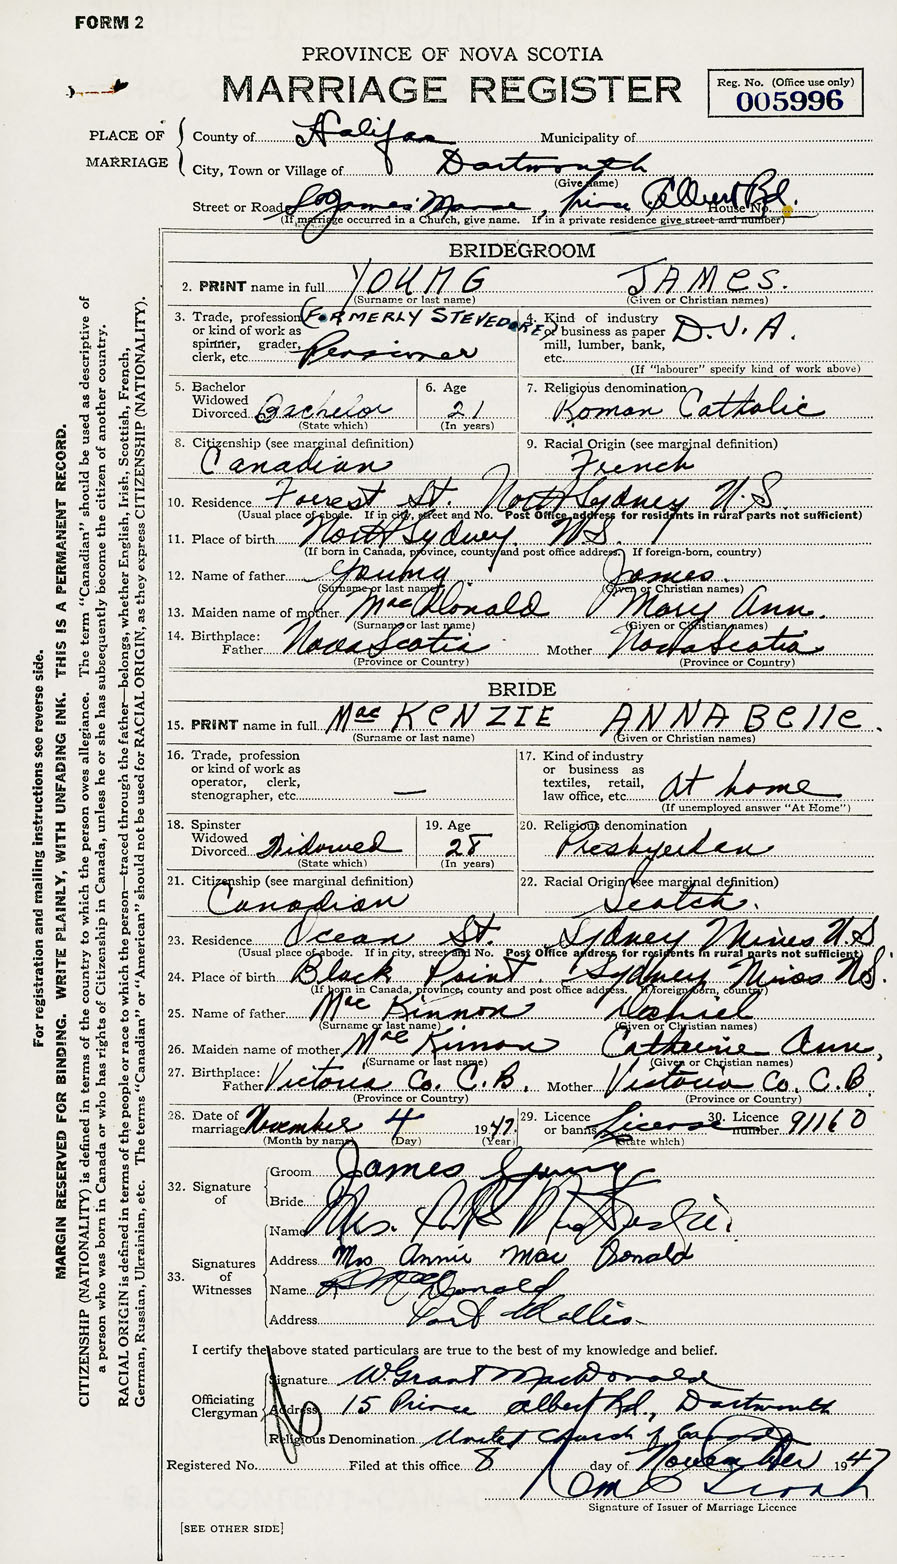 FORM 2
PROVINCE OF NOVA SCOTIA
MARRIAGE REGISTER
Reg. No. (Office use only)
005996
PLACE OF MARRIAGE
County of Halifax Municipality of
City, Town or Village of Dartmouth
(Give name)
Street or Road James Manse, Prince Albert Rd. House No.
(If marriage occurred in a Church, give name. If in a private residence give street and number)
BRIDEGROOM
2. PRINT name in full YOUNG JAMES.
(Surname or last name) (Given or Christian names)
3. Trade, profession or kind of work as spinner, grader, clerk, etc. (FORMERLY STEVEDORE) Pensioner
4. Kind of industry or business as paper mill, lumber, bank, etc. D.V.A.
(If "labourer" specify kind of work above)
5. Bachelor Widowed Divorced Bachelor
(State which)
6. Age 21
(In years)
7. Religious denomination Roman Catholic
8. Citizenship (see marginal definition) Canadian
9. Racial Origin (see marginal definition) French
10. Residence Forrest St. North Sydney N.S.
(Usual place of abode. If in city, street and No. Post Office address for residents in rural parts not sufficient)
11. Place of birth North Sydney N.S.
(If born in Canada, province, county and post office address. If foreign-born, country)
12. Name of father Young James.
(Surname or last name) (Given or Christian names)
13. Maiden name of mother MacDonald Mary Ann.
(Surname or last name) (Given or Christian names)
14. Birthplace: Father Nova Scotia Mother Nova Scotia
(Province or Country) (Province or Country)
BRIDE
15. PRINT name in full MacKENZIE ANNABelle.
(Surname or last name) (Given or Christian names)
16. Trade, profession or kind of work as operator, clerk, stenographer, etc. —
17. Kind of industry or business as textiles, retail, law office, etc. At home
(If unemployed answer "At Home")
18. Spinster Widowed Divorced Widowed
(State which)
19. Age 28
(In years)
20. Religious denomination Presbyterian
21. Citizenship (see marginal definition) Canadian
22. Racial Origin (see marginal definition) Scotch.
23. Residence Ocean St. Sydney Mines N.S.
(Usual place of abode. If in city, street and No. Post Office address for residents in rural parts not sufficient)
24. Place of birth Black Point Sydney Mines N.S.
(If born in Canada, province, county and post office address. If foreign-born, country)
25. Name of father MacKinnon
(Surname or last name) (Given or Christian names)
26. Maiden name of mother MacKinnon Catherine Ann,
(Surname or last name) (Given or Christian names)
27. Birthplace: Father Victoria Co. C.B. Mother Victoria Co. C.B
(Province or Country) (Province or Country)
28. Date of marriage November 4 1947.
(Month by name) (Day) (Year)
29. Licence or banns License
(State which)
30. Licence number 91160
32. Signature of
Groom James Young
Bride Mrs.
33. Signatures of Witnesses
Name
Address Mrs Annie MacDonald
Name MacDonald
Address Port Wallis
I certify the above stated particulars are true to the best of my knowledge and belief.
Officiating Clergyman
Signature W. Grant MacDonald
Address 15 Prince Albert Rd., Dartmouth
Religious Denomination United Church of Canada
Registered No. Filed at this office 8 day of November 1947
Signature of Issuer of Marriage Licence
[SEE OTHER SIDE]
For registration and mailing instructions see reverse side.
MARGIN RESERVED FOR BINDING. WRITE PLAINLY, WITH UNFADING INK. THIS IS A PERMANENT RECORD.
CITIZENSHIP (NATIONALITY) is defined in terms of the country to which the person owes allegiance. The term "Canadian" should be used as descriptive of
a person who was born in Canada or who has rights of Citizenship in Canada, unless he or she has subsequently become the citizen of another country.
RACIAL ORIGIN is defined in terms of the people or race to which the person—traced through the father—belongs, whether English, Irish, Scottish, French,
German, Russian, Ukrainian, etc. The terms "Canadian" or "American" should not be used for RACIAL ORIGIN, as they express CITIZENSHIP (NATIONALITY).